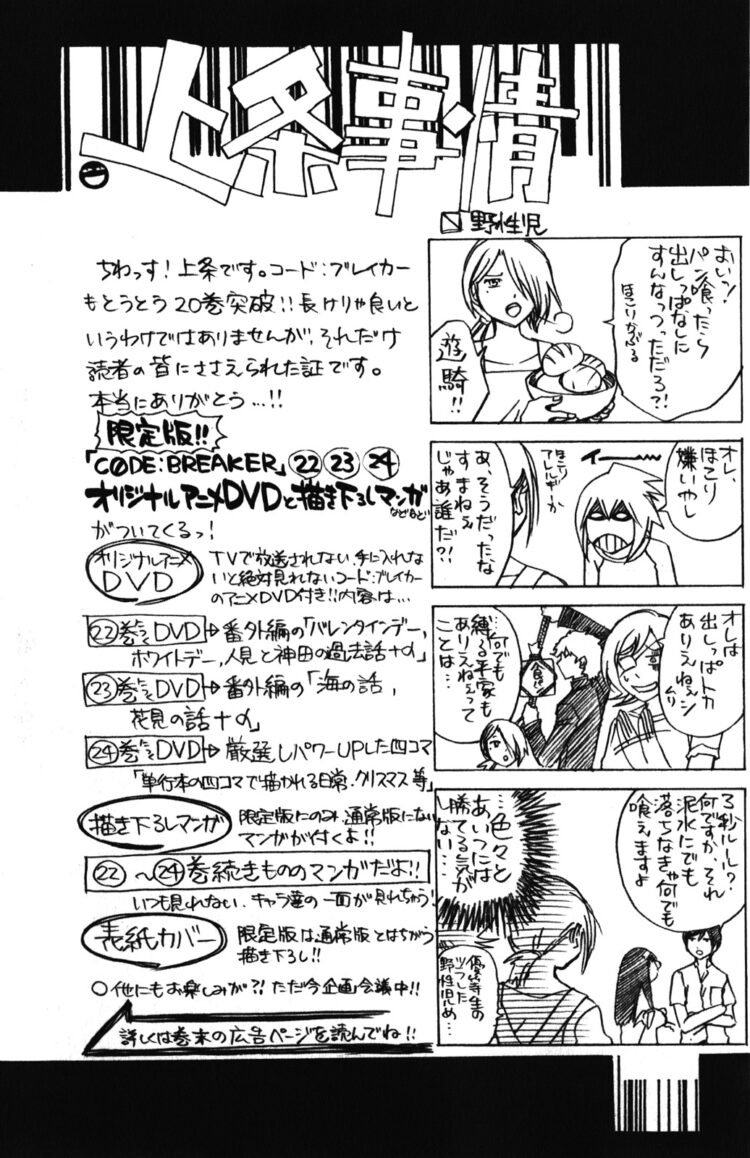 上条事情
野性児
ちわっす!上条です。コード:ブレイカー
もとうとう20巻突破!!長けりゃ良いと
いうわけではありませんが、それだけ
読者の皆にささえられた証です。
本当にありがとう…!!
限定版!!
「CØDE:BREAKER」㉒㉓㉔
オリジナルアニメDVDと描き下ろしマンガ
などなど
がついてくるっ!
オリジナルアニメ
DVD
TVで放送されない、手に入れな
いと絶対見れないコード:ブレイカー
のアニメDVD付き!!内容は…
㉒巻DVD→番外編の「バレンタインデー,
ホワイトデー,人見と神田の過去話+α」
㉓巻DVD→番外編の「海の話,
花見の話+α」
㉔巻DVD→厳選しパワーUPした四コマ
「単行本の四コマで描かれる日常.クリスマス等」
描き下ろしマンガ
限定版にのみ、通常版にない
マンガが付くよ!!
㉒〜㉔巻続きもののマンガだよ!!
いつも見れない、キャラ達の一面が見れちゃう!
表紙カバー
限定版は通常版とはちがう
描き下ろし!!
○他にもお楽しみが?!ただ今企画会議中!!
詳しくは巻末の広告ページを読んでね!!
おいッ!
パン喰ったら
出しっぱなしに
すんなっつっただろ?!
ほこりかぶる
遊騎!!
オレ、
ほこり
嫌いやし
イーーー
ほこり
アレルギーか
あ、そうだったな
すまねぇ
じゃあ誰だ?!
オレは
出しっぱトカ
ありえねぇシ
ムリ
…何でも
縛る平家も
ありえねぇって
ことは…
3秒ルール?
何ですか、それ
泥水にでも
落ちなきゃ何でも
喰えますよ
…色々と
あいつには
勝てる気が
しない…
優等生の
ツラした
野性児め…